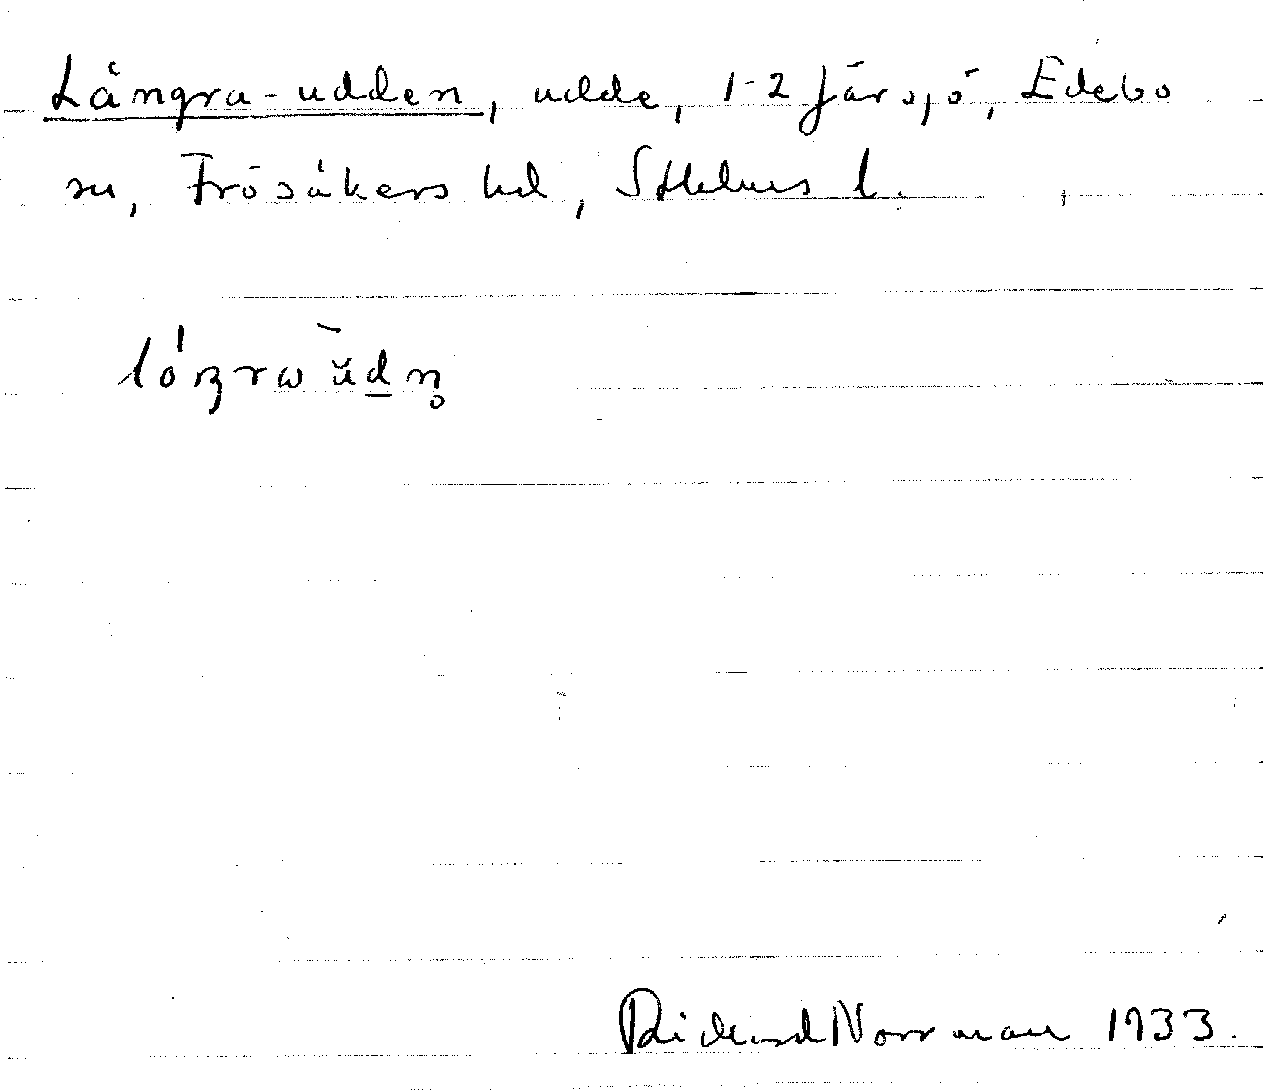 Långra-udden, udde, 1-2 Järsjö, Edebo
sn, Frösåkers hd, Sthlms l.
lóŋrω ŭdn̥
Rickard Norrman 1933.